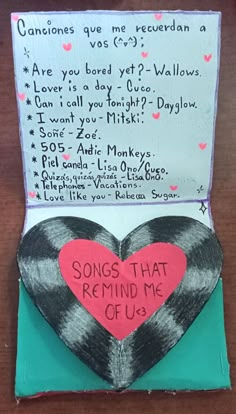 Canciones que me recuerdan a
vos (^~^):
* Are you bored yet? - Wallows.
* Lover is a day - Cuco.
* Can i call you tonight? - Dayglow.
* I want you - Mitski.
* Soñé - Zoé.
* 505 - Artic Monkeys.
* Piel canela - Lisa Ono/Cuco.
* Quizás, quizás, quizás - Lisa Ono.
* Telephones - Vacations.
* Love like you - Rebecca Sugar.
SONGS THAT
REMIND ME
OF U<3